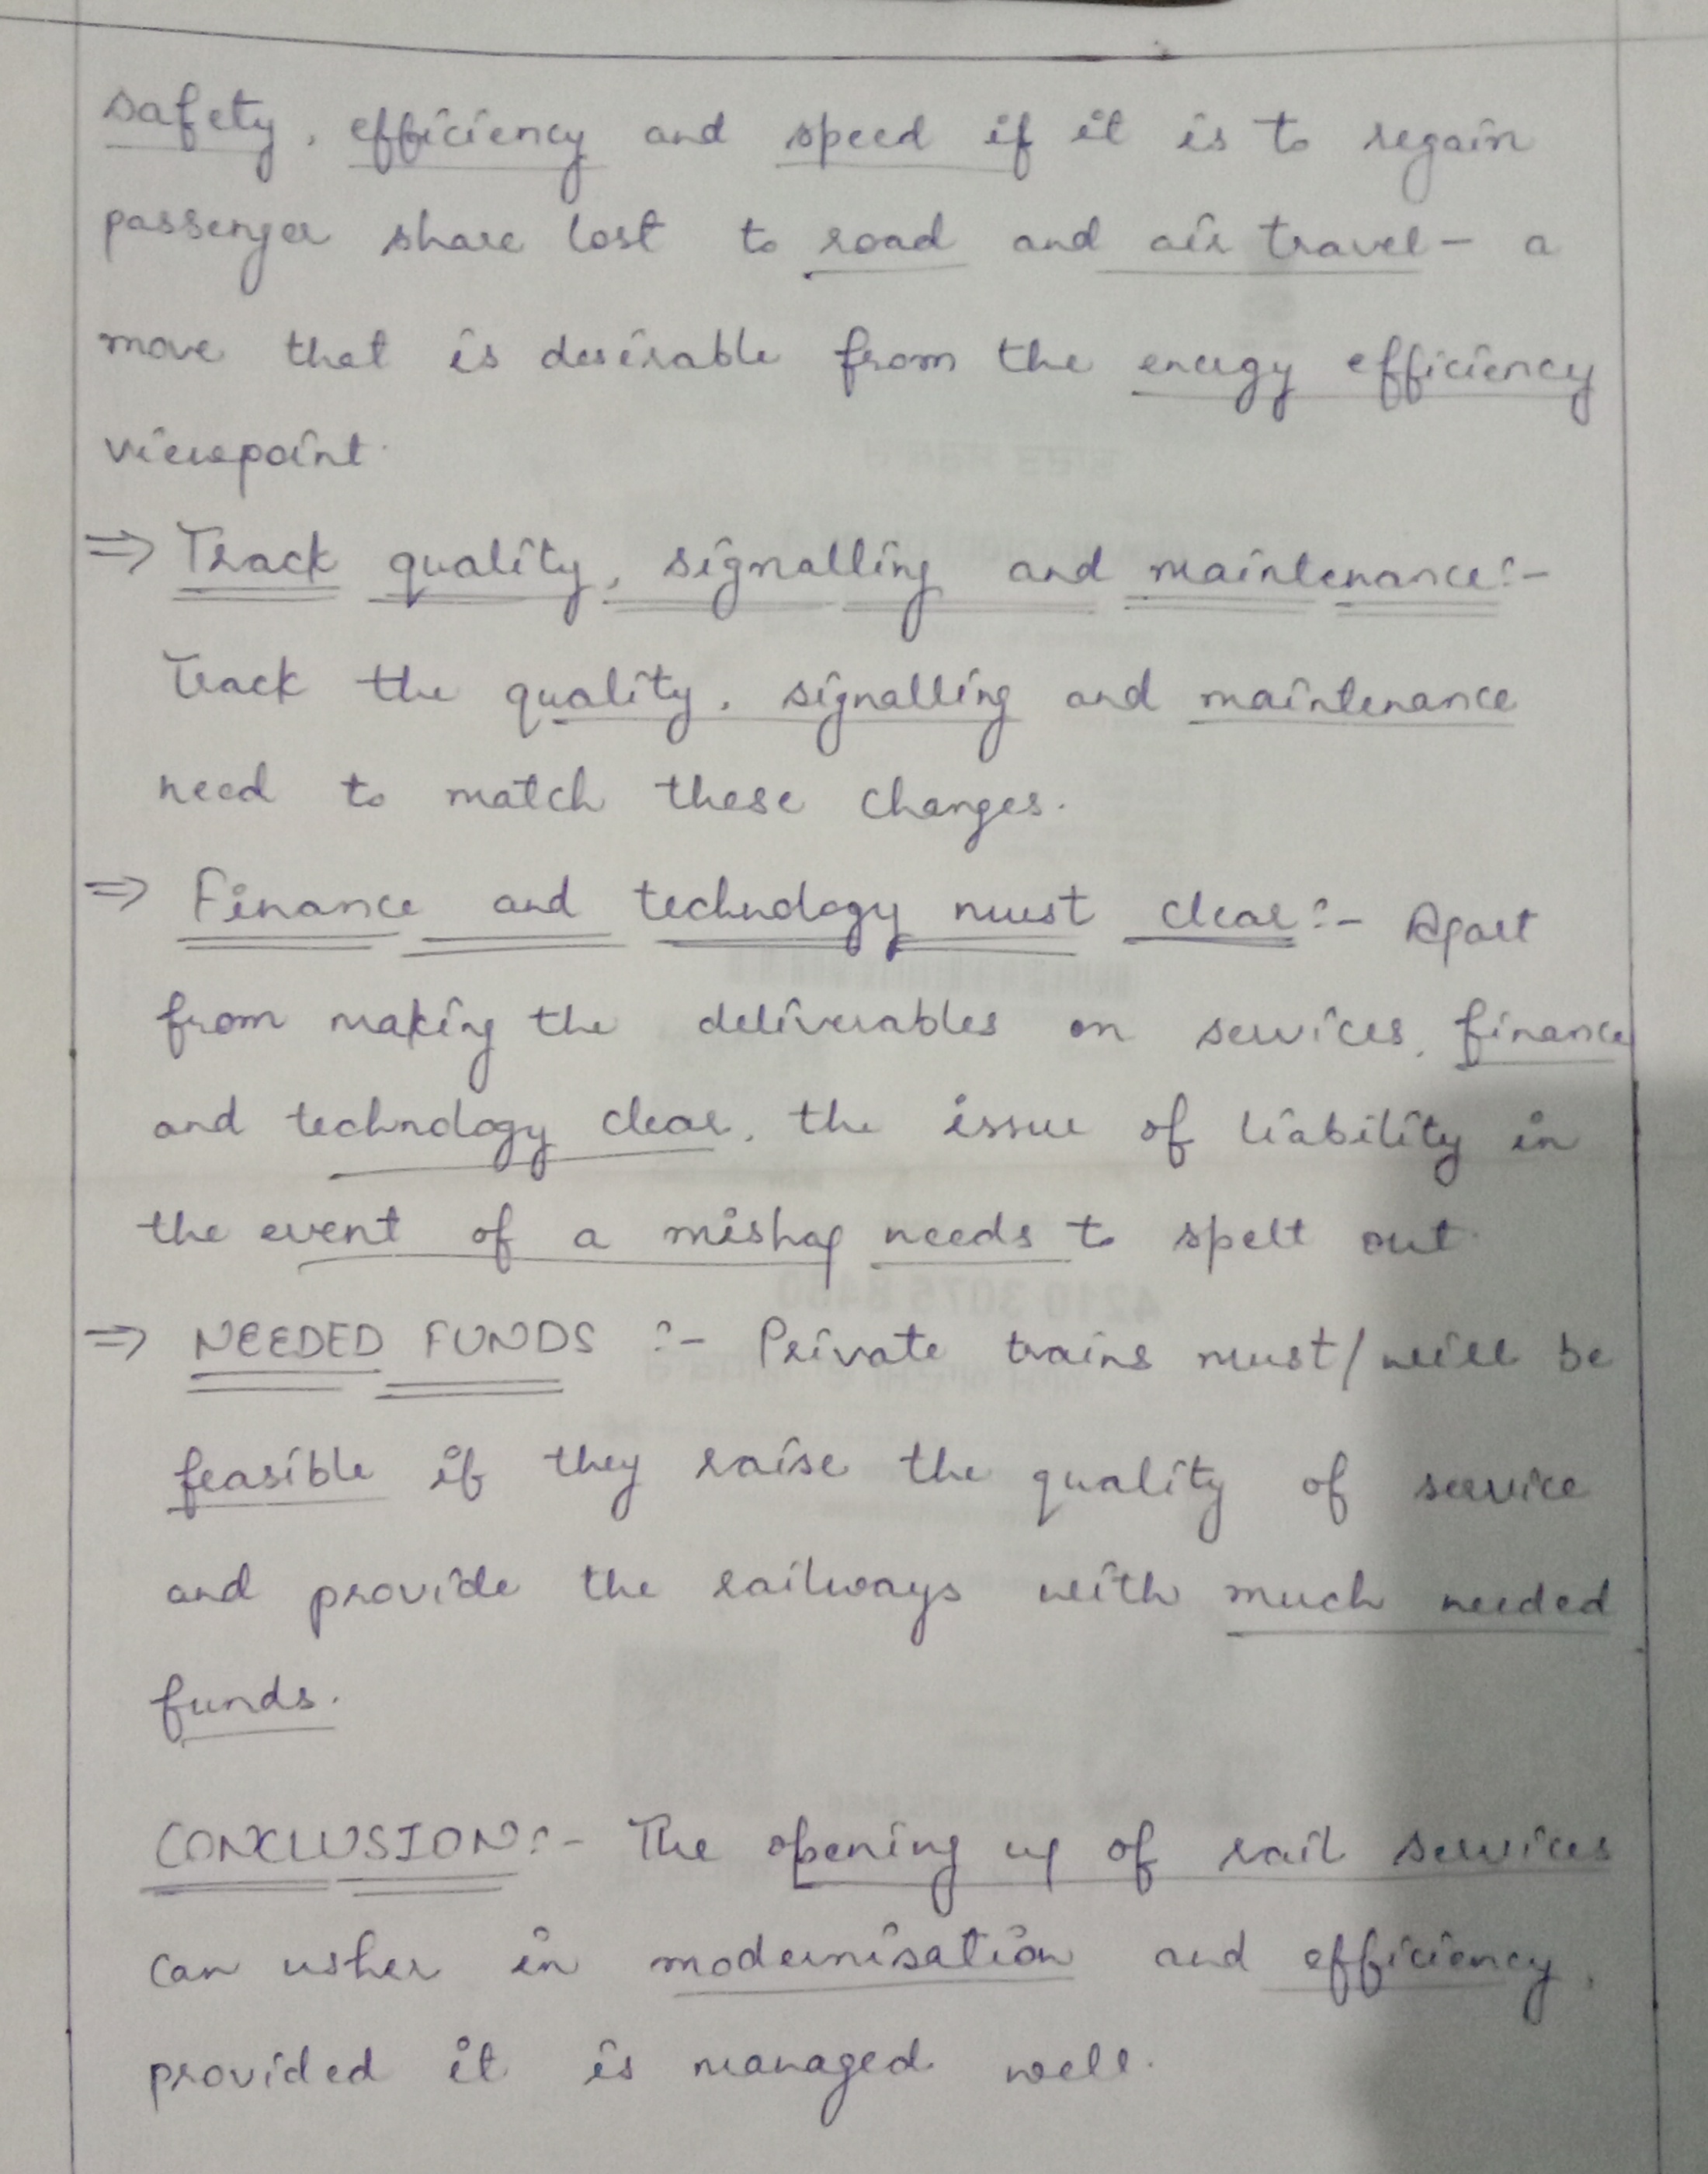 safety, efficiency and speed if it is to regain
passenger share lost to road and air travel – a
move that is desirable from the energy efficiency
viewpoint.
⇒ Track quality, signalling and maintenance:-
Track the quality, signalling and maintenance
need to match these changes.
⇒ Finance and technology must clear:- Apart
from making the deliverables on services, finance
and technology clear, the issue of liability in
the event of a mishap needs to spelt out.
⇒ NEEDED FUNDS :- Private trains must/will be
feasible if they raise the quality of service
and provide the railways with much needed
funds.
CONCLUSION:- The opening up of rail services
can usher in modernisation and efficiency,
provided it is managed well.